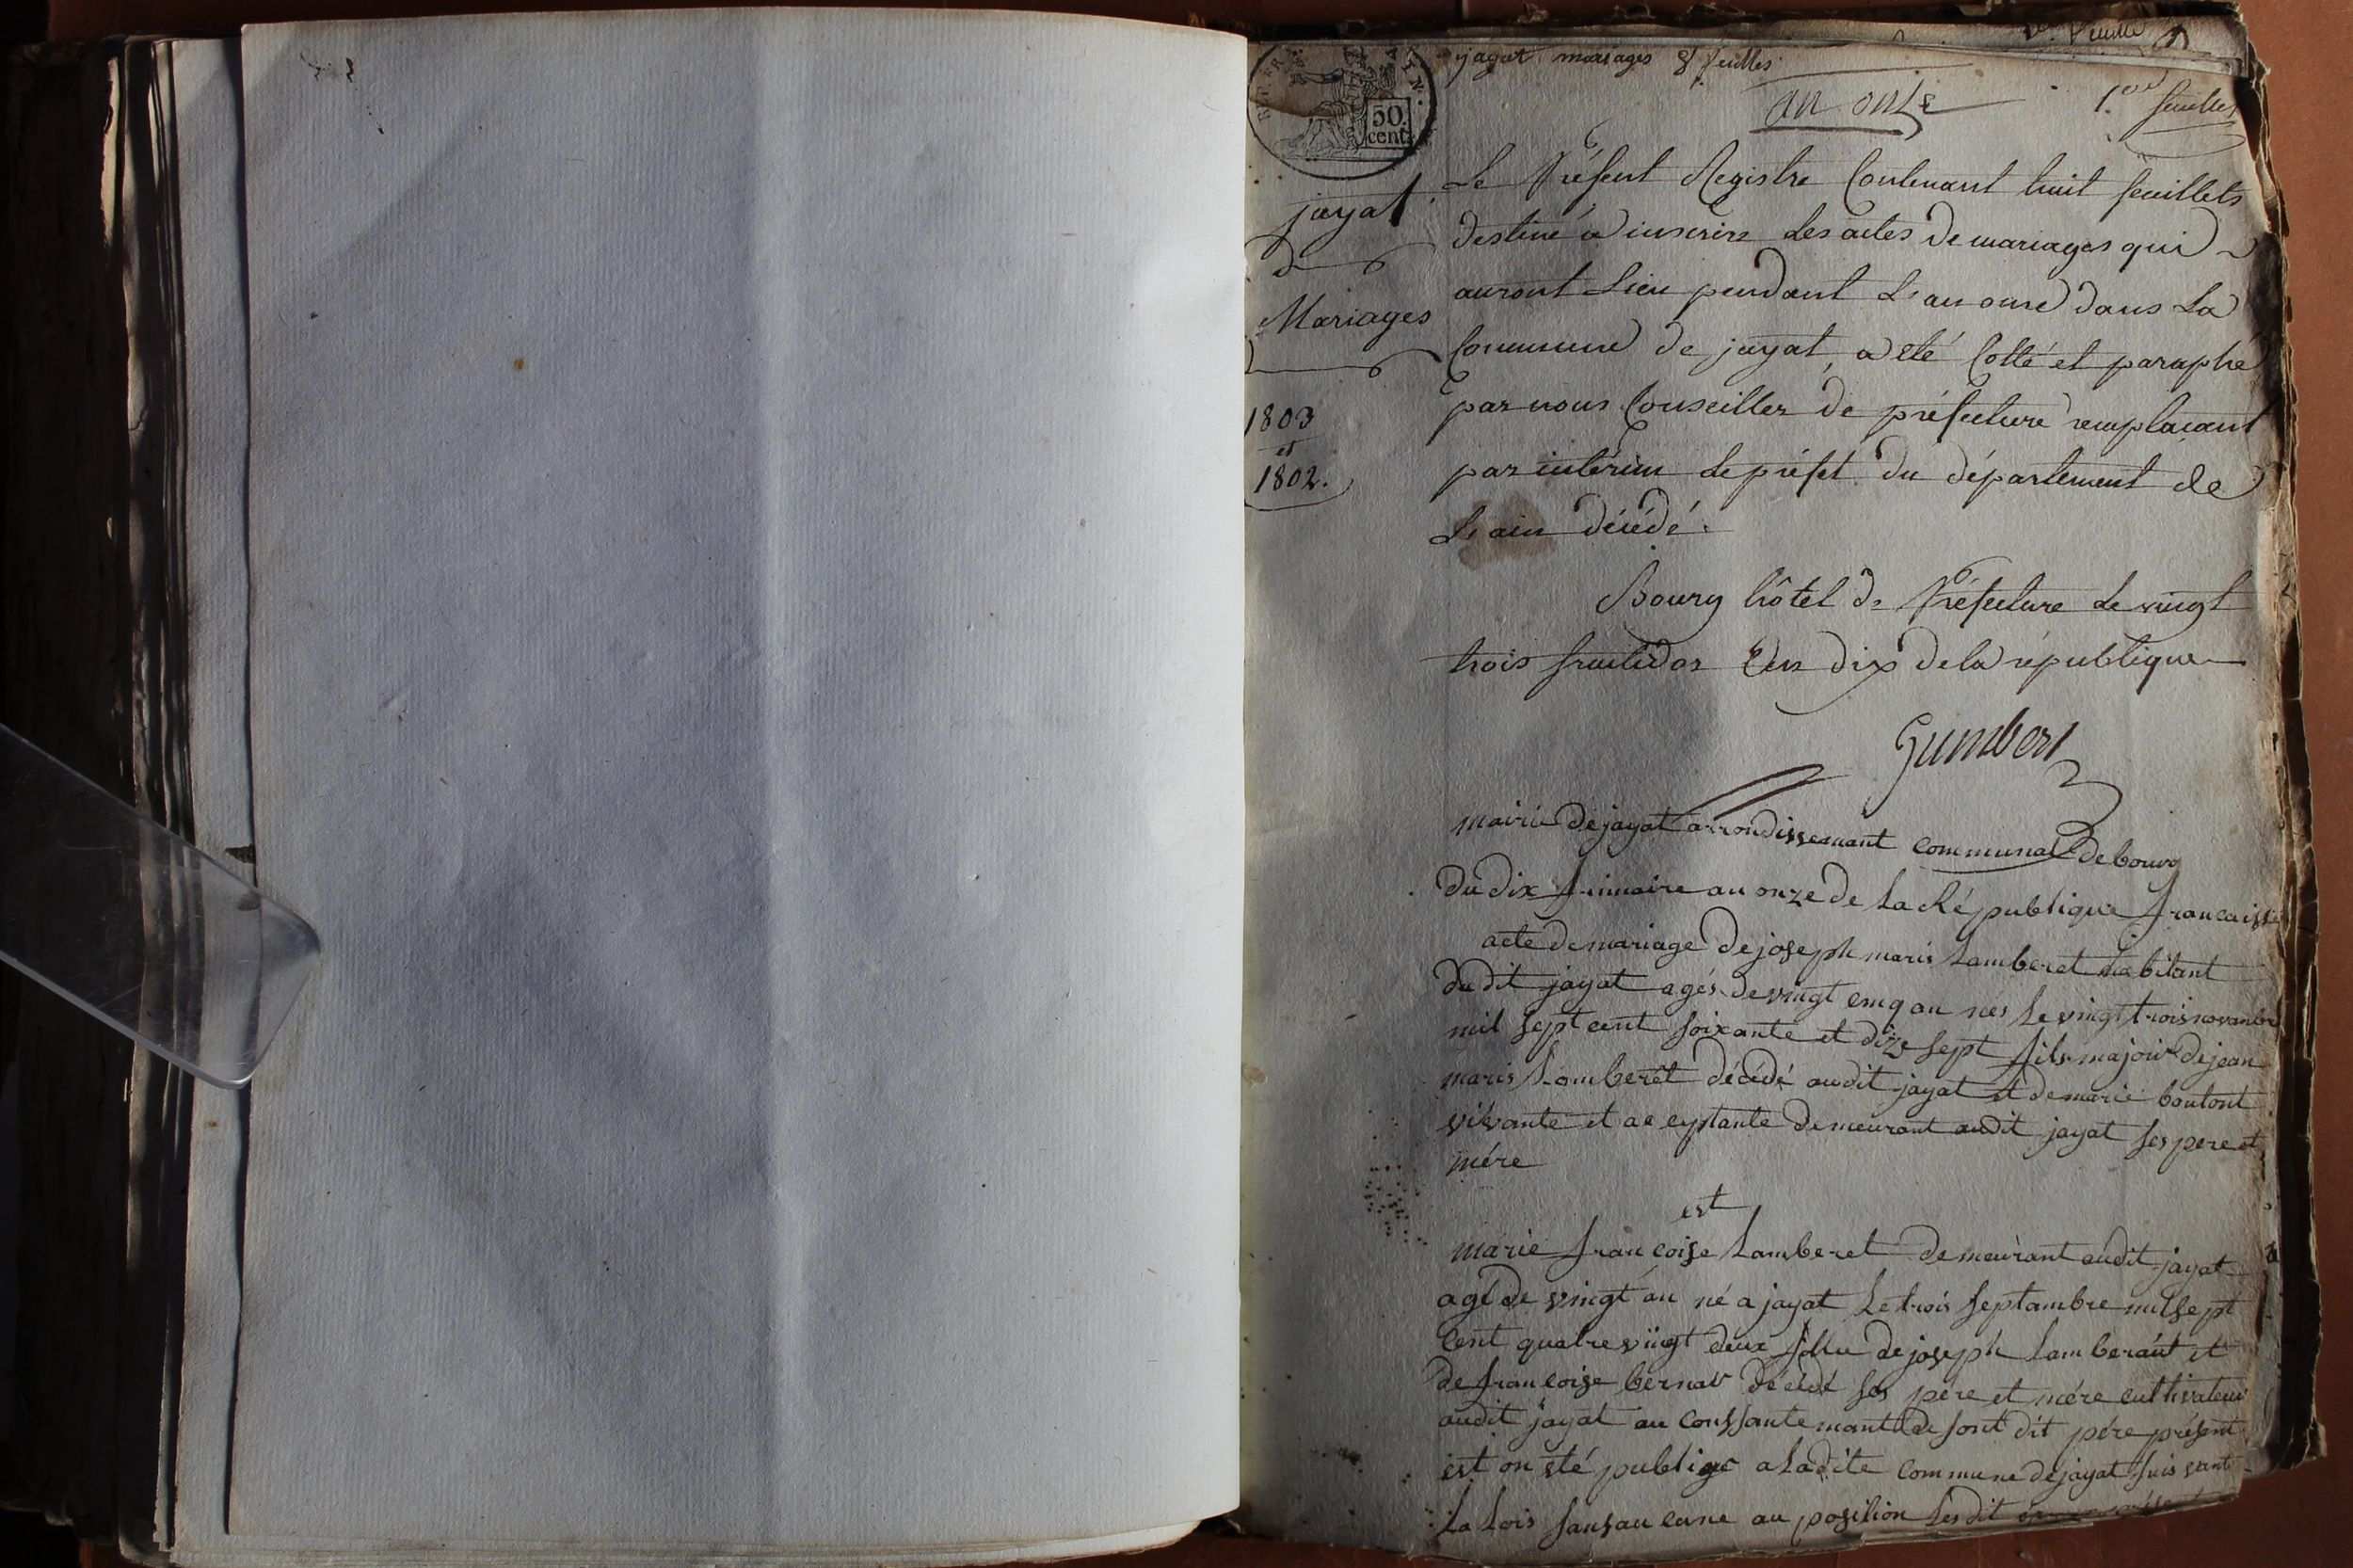 jayat mariages 8 feuilles
an onze
1.er feuillet
REP. FRA
50.
cent.
jayat
Mariages
1803
et
1802.
Le Présent Registre Contenant huit feuillets
destiné a inscrire les actes de mariages qui
auront Lieu pendant L'an onze dans La
Commune de jayat, a été Cotté et paraphé
par nous Conseiller de préfecture remplacant
par interim Le préfet du département de
L'ain décédé.
Bourg hôtel de Préfecture Le vingt
trois fructidor an dix de la république
Gumbert
mairie de jayat arrondissemant communal de bourg
du dix frimaire an onze de La République francaisse
acte de mariage de joseph marie Lamberet habitant
du dit jayat agés de vingt cinq an nés Le vingt trois novambre
mil sept cent soixante et dize sept fils majoir de jean
marie Lamberet décédé audit jayat et de marie boutont
vivante et aceyptante demeurant audit jayat ses pere et
mére
est
marie francoise Lamberet demeurant audit jayat
agé de vingt an né a jayat Le trois septambre mil sept
cent quatre viigt deux fille de joseph Lamberaut et
de francoise bernar décédé ses pére et mére cultivateur
audit jayat au conssantemant de sont dit pére présent
est on été publige a Ladite commune de jayat suis vant
La Lois sans au cune au posilion Les dit